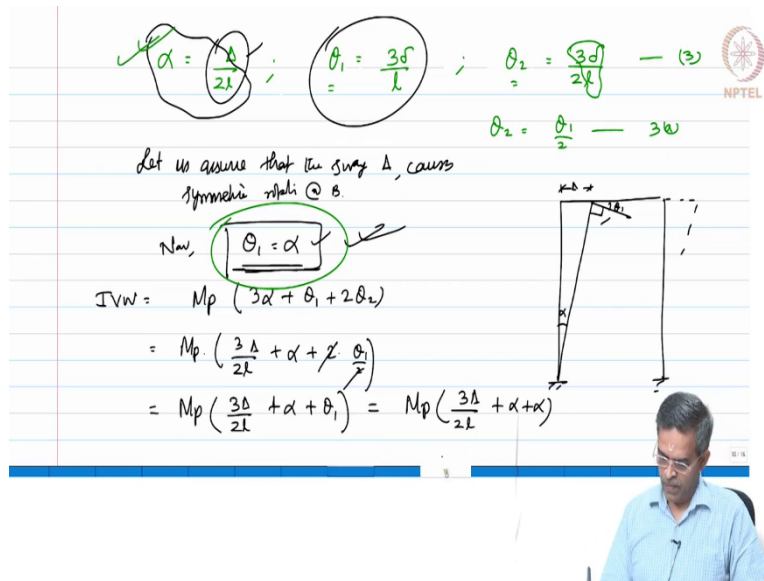 α = Δ/2l ; θ₁ = 3δ/l ; θ₂ = 3δ/2l — (3)
NPTEL
θ₂ = θ₁/2 — 3(a)
Let us assume that the sway Δ, causes
symmetric @ B.
Now, θ₁ = α
IVW = Mp (3α + θ₁ + 2θ₂)
= Mp. (3Δ/2l + α + 2. θ₁/2)
= Mp (3Δ/2l + α + θ₁) = Mp (3Δ/2l + α + α)
Δ
θ₁
α